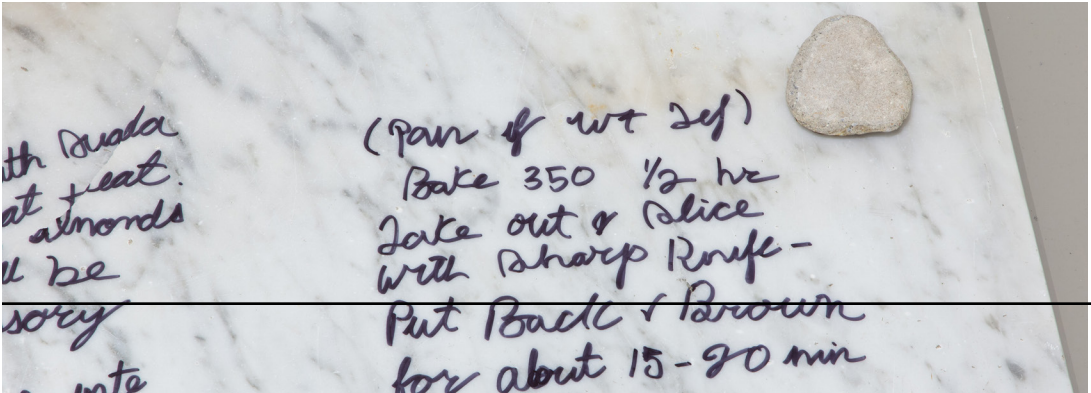 th Suada
at + eat.
almonds
be
sory
(Pan if wt Def)
Bake 350 1/2 hr
Take out & Slice
with Sharp Knife -
Put Back & Brown
for about 15-20 min